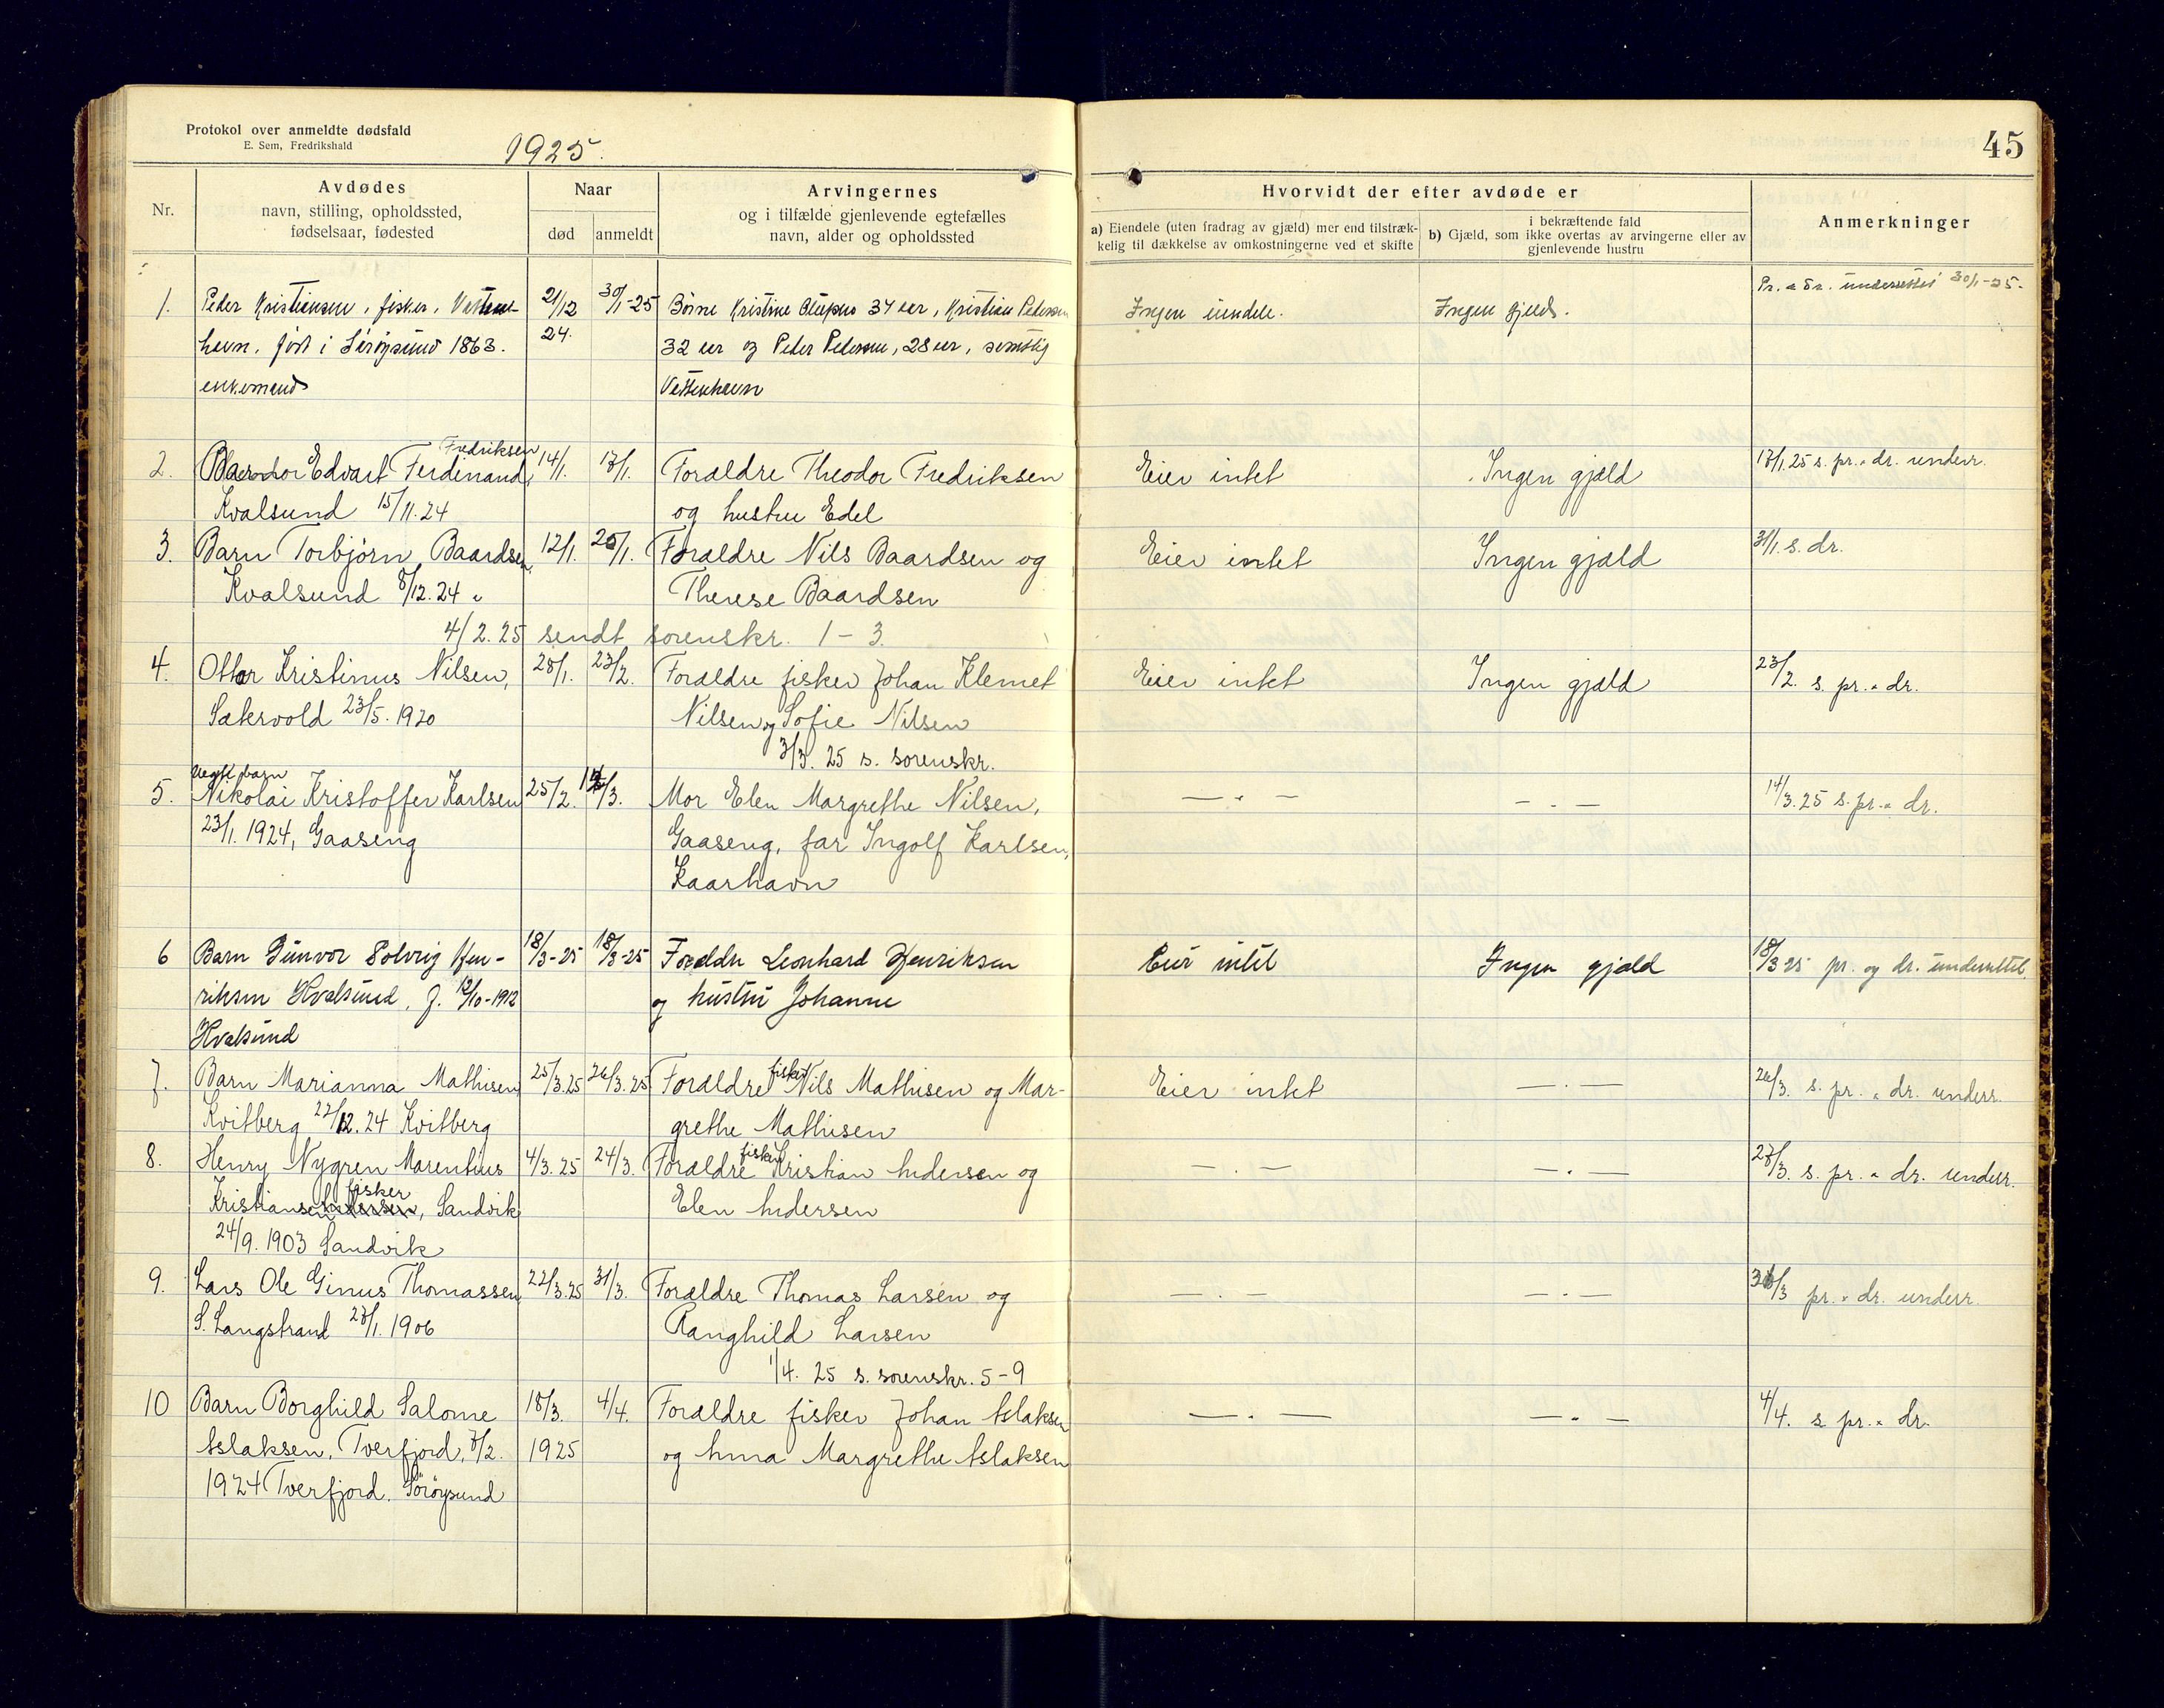 Protokol over anmeldte dødsfald
E. Sem, Fredrikshald
1925.
45
Nr.
Avdødes
navn, stilling, opholdssted,
fødselsaar, fødested
Naar
død
anmeldt
Arvingernes
og i tilfælde gjenlevende egtefælles
navn, alder og opholdssted
Hvorvidt der efter avdøde er
a) Eiendele (uten fradrag av gjæld) mer end tilstræk-
kelig til dækkelse av omkostningerne ved et skifte
i bekræftende fald
b) Gjæld, som ikke overtas av arvingerne eller av
gjenlevende hustru
Anmerkninger
1. Peder Kristiansen, fisker, 21/12 30/1-25 Börne Kristine 34 aar, Kristian Pedersen Ingen eiendele. Ingen gjeld. Pr. & dr. underrettet 30/1-25.
havn, föd i Söröysund 1863. 24. 32 aar og Peder Pedersen, 28 aar, samtlig
enkemand
Fredriksen
2. Edvart Ferdinand, 14/1. 17/1. Forældre Theodor Fredriksen Eier intet Ingen gjæld 17/1.25 s. pr. " dr. underr.
Kvalsund 15/11.24 og hustru Edel
3. Barn Torbjörn Baardsen, 12/1. 26/1. Forældre Nils Baardsen og Eier intet Ingen gjæld 31/1. s. dr.
Kvalsund 8/12.24 Therese Baardsen
4/2.25 sendt sorenskr. 1-3.
4. Ottar Kristinus Nilsen, 28/1. 23/2. Forældre fisker Johan Klemet Eier intet Ingen gjæld 23/2. s. pr. " dr.
Sakervold 23/5.1920 Nilsen og Sofie Nilsen
3/3. 25 s. sorenskr.
uegte barn
5. Nikolai Kristoffer Karlsen 25/2. 14/3. Mor Elen Margrethe Nilsen, — " — — " — 14/3.25 s. pr. " dr.
23/1. 1924, Gaaseng Gaaseng, far Ingolf Karlsen,
Kaarhavn
6 Barn Gunvor Solveig Hen- 18/3-25 18/3-25 Foreldre Leonhard Henriksen Eier intet Ingen gjæld 18/3 25 pr. og dr. underrettet
riksen Hvalsund, f. 12/10-1912 og hustru Johanne
Hvalsund
7. Barn Marianna Mathisen, 25/3.25 26/3.25 Forældre fisker Nils Mathisen og Mar- Eier intet — " — 26/3. s. pr. " dr. underr.
Kvitberg 22/12.24 Kvitberg grethe Mathisen
8. Henry Nygren Marentius 4/3.25 24/3. Forældre fisker Kristian Andersen og — " — — " — 27/3. s. pr. " dr. underr.
Kristiansen fisker, Sandvik Elen Andersen
24/9. 1903 Sandvik
9. Lars Ole Ginus Thomassen, 22/3.25 31/3. Forældre Thomas Larsen og — " — — " — 3/3 pr. " dr. underr.
S. Langstrand 23/1. 1906 Ranghild Larsen
1/4. 25 s. sorenskr. 5-9
10 Barn Borghild Salome 18/3. 4/4. Forældre fisker Johan Aslaksen — " — — " — 4/4. s pr. " dr.
Aslaksen, Tverfjord, 7/2. 1925 og Anna Margrethe Aslaksen
1924 Tverfjord. Söröysund